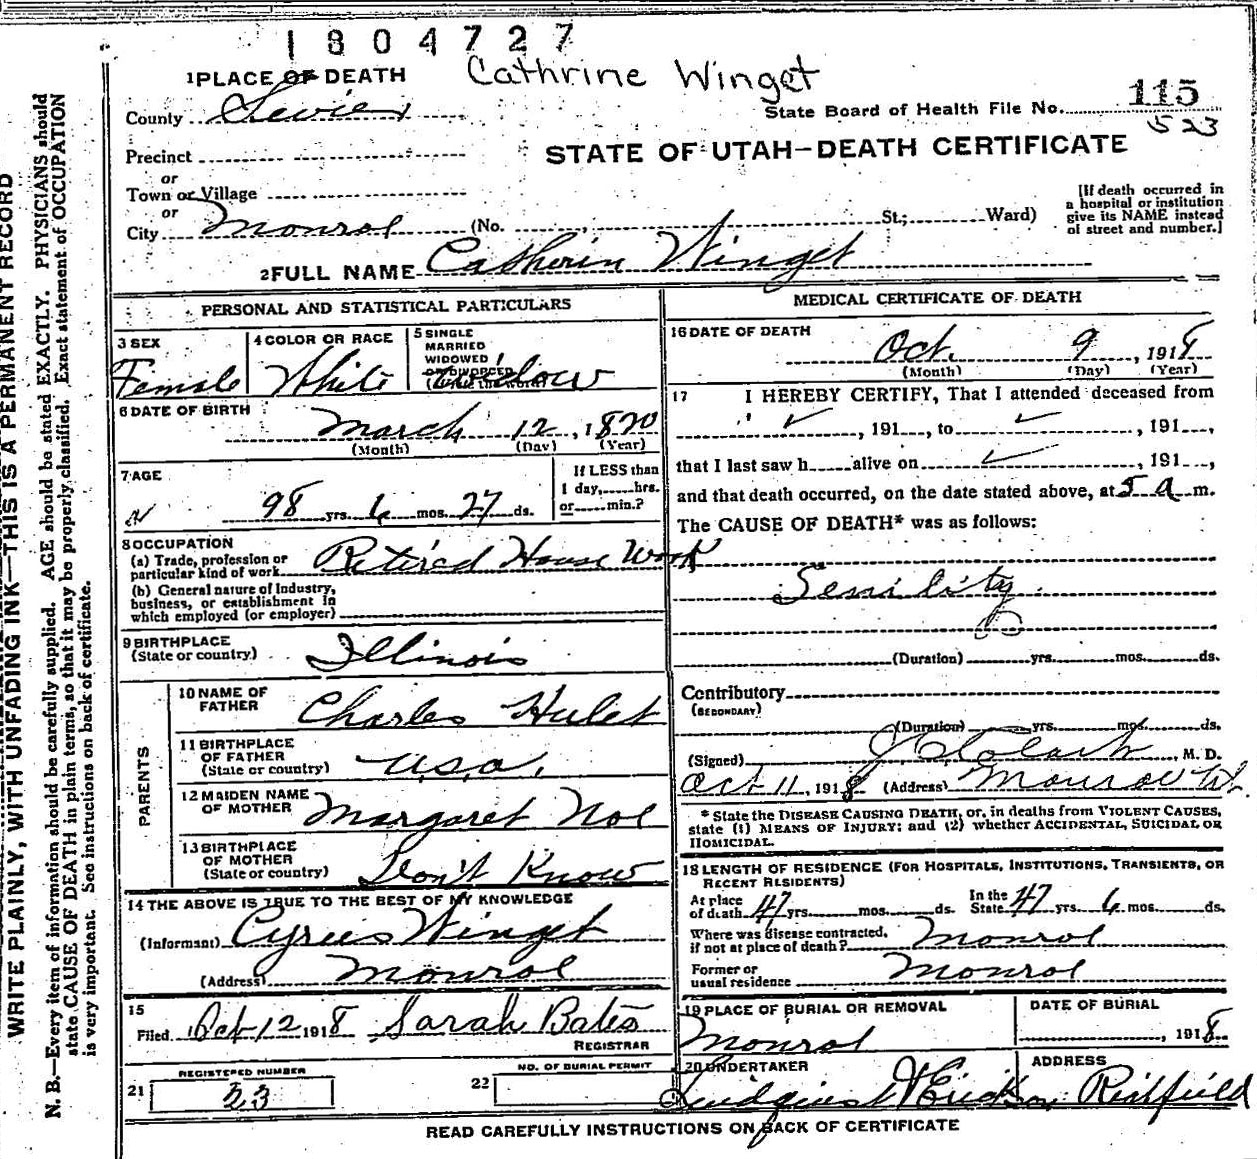 1804727
1 PLACE OF DEATH Cathrine Winget
County Sevier State Board of Health File No. 115
523
Precinct
or
Town or Village
or
City Monroe (No. St.; Ward)
STATE OF UTAH—DEATH CERTIFICATE
[If death occurred in
a hospital or institution
give its NAME instead
of street and number.]
2 FULL NAME Catherin Winget
PERSONAL AND STATISTICAL PARTICULARS
3 SEX
Female
4 COLOR OR RACE
White
5 SINGLE
MARRIED
WIDOWED
OR DIVORCED
(Write the word)
Widow
6 DATE OF BIRTH
March 12, 1820
(Month) (Day) (Year)
7 AGE
98 yrs. 6 mos. 27 ds.
If LESS than
1 day, hrs.
or min.?
8 OCCUPATION
(a) Trade, profession or
particular kind of work Retired House Work
(b) General nature of Industry,
business, or establishment in
which employed (or employer)
9 BIRTHPLACE
(State or country) Illinois
PARENTS
10 NAME OF
FATHER Charles Hulet
11 BIRTHPLACE
OF FATHER
(State or country) U.S.A.
12 MAIDEN NAME
OF MOTHER Margaret Noe
13 BIRTHPLACE
OF MOTHER
(State or country) Don't Know
14 THE ABOVE IS TRUE TO THE BEST OF MY KNOWLEDGE
(Informant) Cyrus Winget
(Address) Monroe
15
Filed Oct 12 1918 Sarah Bates
REGISTRAR
REGISTERED NUMBER
21 23
NO. OF BURIAL PERMIT
22
MEDICAL CERTIFICATE OF DEATH
16 DATE OF DEATH
Oct. 9, 1918
(Month) (Day) (Year)
17 I HEREBY CERTIFY, That I attended deceased from
✓, 191, to ✓, 191,
that I last saw h alive on ✓, 191,
and that death occurred, on the date stated above, at 5 a m.
The CAUSE OF DEATH* was as follows:
Senility
(Duration) yrs. mos. ds.
Contributory
(SECONDARY)
(Duration) yrs. mos. ds.
(Signed) M. D.
Oct 11, 1918 (Address) Monroe Ut.
* State the DISEASE CAUSING DEATH, or, in deaths from VIOLENT CAUSES,
state (1) MEANS OF INJURY; and (2) whether ACCIDENTAL, SUICIDAL OR
HOMICIDAL.
18 LENGTH OF RESIDENCE (FOR HOSPITALS, INSTITUTIONS, TRANSIENTS, OR
RECENT RESIDENTS)
At place In the
of death 47 yrs. mos. ds. State 47 yrs. 6 mos. ds.
Where was disease contracted,
if not at place of death? Monroe
Former or
usual residence Monroe
19 PLACE OF BURIAL OR REMOVAL
Monroe
DATE OF BURIAL
, 1918
20 UNDERTAKER
ADDRESS
Richfield
READ CAREFULLY INSTRUCTIONS ON BACK OF CERTIFICATE
WRITE PLAINLY, WITH UNFADING INK—THIS IS A PERMANENT RECORD
N. B.—Every item of information should be carefully supplied. AGE should be stated EXACTLY. PHYSICIANS should
state CAUSE OF DEATH in plain terms, so that it may be properly classified. Exact statement of OCCUPATION
is very important. See instructions on back of certificate.